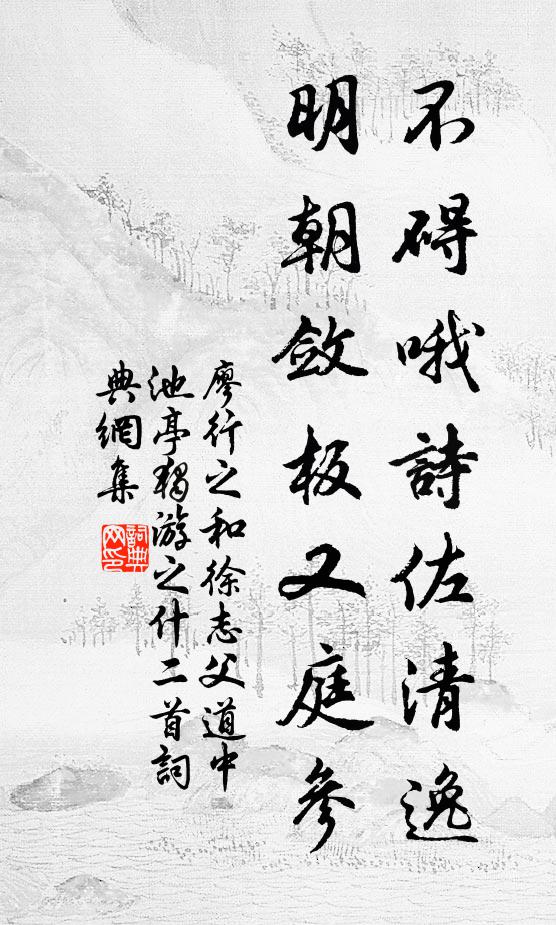 不碍哦詩佐清逸
明朝斂板又庭參
廖行之和徐志父道中
池亭獨游之什二首詞
典網集
詞典
网印